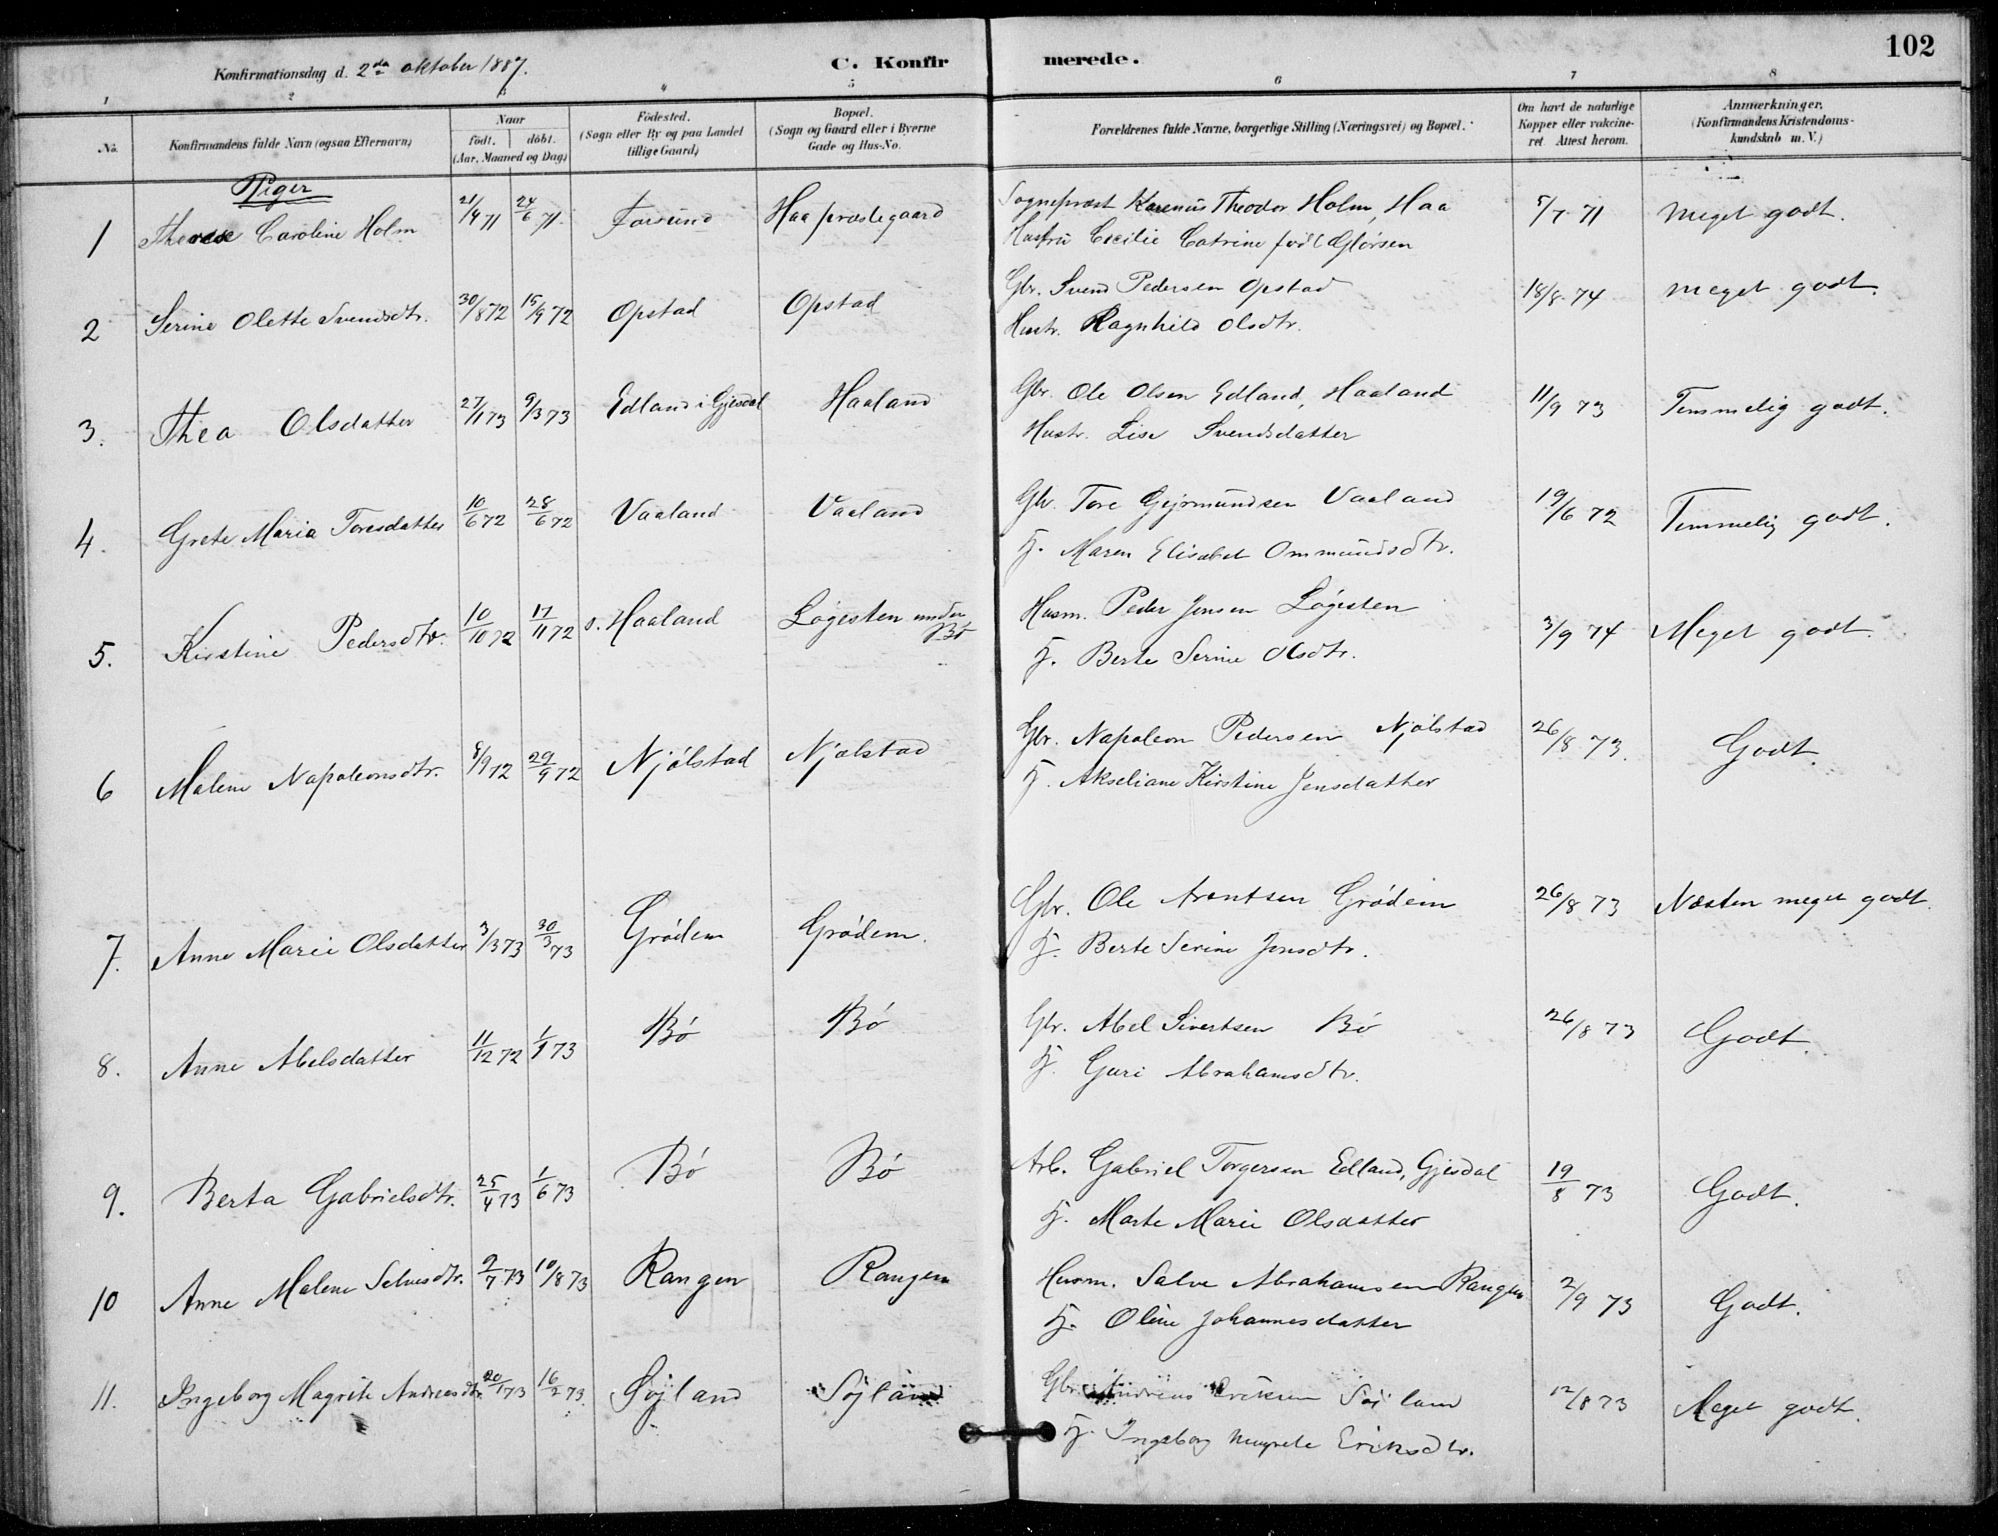 102
Konfirmationsdag d. 2da oktober 1887.
C. Konfirmerede.
1 2 3 4 5 6 7 8
No.
Konfirmandens fulde Navn (ogsaa Efternavn)
Naar
födt. döbt.
(Aar, Maaned og Dag)
Födested.
(Sogn eller By og paa Landet
tillige Gaard)
Bopæl.
(Sogn og Gaard eller i Byerne
Gade og Hus-No.
Forældrenes fulde Navne, borgerlige Stilling (Næringsvei) og Bopæl.
Om havt de naturlige
Kopper eller vakcine-
ret Attest herom.
Anmærkninger.
(Konfirmandens Kristendoms-
kundskab m. V.)
Piger
1 Therese Caroline Holm 21/4 71 24/6 71 Haa præstegaard Sognepræst Karenius Theodor Holm, Haa 5/7 71 Meget godt.
Hustru Cecilie Catrine född
2 Serine Olette Svendsdtr. 30/8 72 15/9 72 Opstad Opstad Gbr. Svend Pedersen Opstad 18/8 74 Meget godt.
Hustr. Ragnhild Olsdtr.
3. Thea Olsdatter 27/1 73 9/3 73 Edland i Gjesdal Haaland Gbr. Ole Olsen Edland, Haaland 11/9 73 Temmelig godt.
Hustr. Lise Svendsdatter
4. Grete Maria Toresdatter 10/6 72 28/6 72 Vaaland Vaaland Gbr. Tore Gejrmundsen Vaaland 19/6 72 Temmelig godt.
H. Maren Elisabet Ommundsdtr.
5. Kirstine Pedersdtr. 10/10 72 17/11 72 s. Haaland Løgesten under Bö Husm. Peder Jensen Løgesten 3/9 74 Meget godt.
H. Berte Serine Olsdtr.
6 Malene Napoleonsdtr. 8/9 72 29/9 72 Njölstad Njölstad Gbr. Napoleon Pedersen Njölstad 26/8 73. Godt.
H. Akseliane Kirstine Jensdatter
7. Anne Marie Olsdatter 3/3 73 30/3 73 Grödem Grödem. Gbr. Ole Arentsen Grödem 26/8 73 Næsten meget godt.
H. Berte Serine Jonsdtr.
8. Anne Abelsdatter 11/12 72 1/1 73 Bö Bö Gbr. Abel Sivertsen Bö 26/8 73 Godt.
H. Guri Abrahamsdtr.
9. Berta Gabrielsdtr. 25/4 73 1/6 73 Bö Bö Arb. Gabriel Torgersen Edland, Gjesdal 19/8 73 Godt.
H. Marte Marie Olsdatter
10 Anne Malene Salvesdtr. 9/7 73 10/8 73 Rangen Rangen Husm. Salve Abrahamsen Rangen 2/9 73 Godt.
H. Oline Johannesdatter
11. Ingeborg Magrete Andreasdtr. 20/1 73 16/2 73. Söjland Söjland Gbr. Andreas Eriksen Söjland 12/8 73 Meget godt.
H. Ingeborg Magrete Eriksdtr.